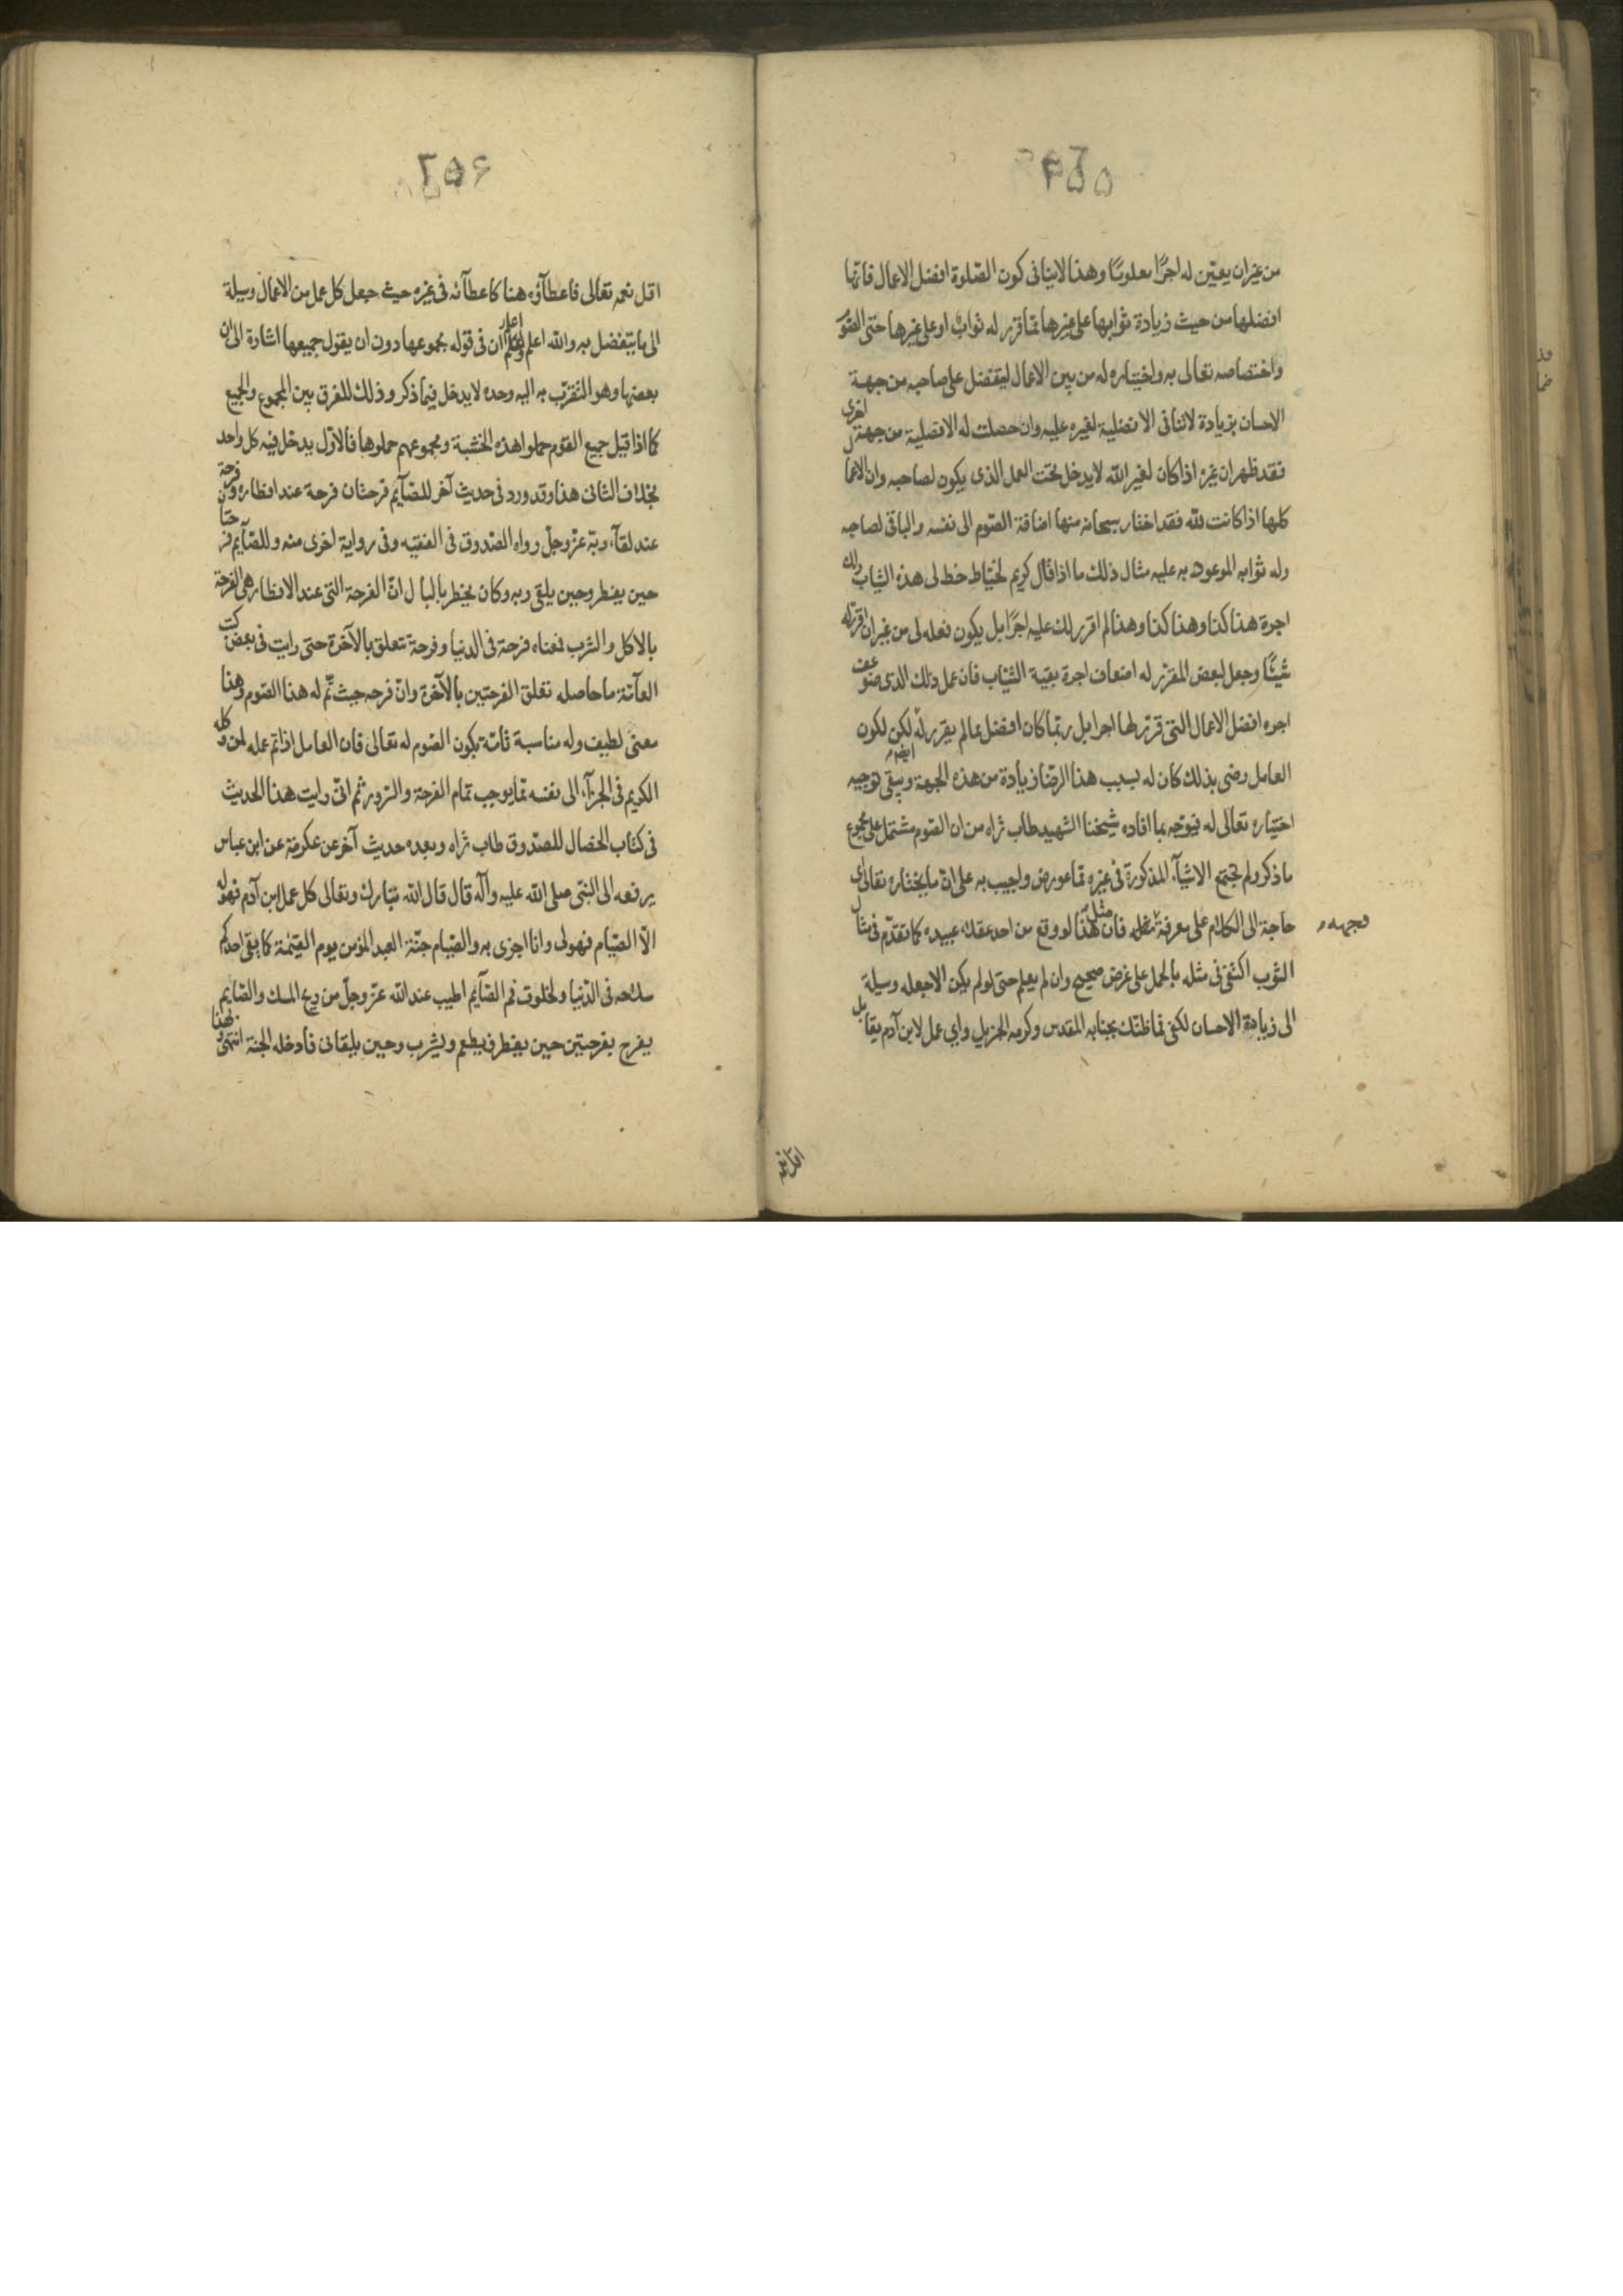 ٢٥٥
من غير ان يعيّن له اجرًا معلومًا وهذا لاينافى كون الصّلوة افضل الاعمال فانّها
افضلها من حيث زيادة ثوابها على غيرها ممّا قرّر له ثواب او على غيرها حتى الصّوم
واختصاصه تعالى به واختياره له من بين الاعمال ليتفضل على صاحبه من جهة
الاحسان بزيادة لاتنافى الافضلية لغيره عليه وان حصلت له الافضلية من جهة اخرى
فقد ظهر ان غيره اذا كان لغير الله لايدخل تحت العمل الذى يكون لصاحبه وان الاعمال
كلها اذا كانت لله فقد اختار سبحانه منها اضافة الصّوم الى نفسه والباقى لصاحبه
وله ثوابه الموعود به عليه مثال ذلك ما اذا قال كريم لخيّاط خط لى هذه الثياب ولك
اجرة هذا كذا وهذا كذا وهذا لم اقرر لك عليه اجرًا بل يكون فعله لى من غير ان اقرّر له
شيئًا وجعل لبعض المقرّر له اضعاف اجرة بقية الثياب فان عمل ذلك الذى ضوعف
اجره افضل الاعمال التى قرّر لها اجرا بل ربّما كان افضل ممّا لم يقرر له لكن لكون
العامل رضى بذلك كان له بسبب هذا الرضا زيادة من هذه الجهة ايضا ويبقى توجيه
اختياره تعالى له فيوجّه بما افاده شيخنا الشهيد طاب ثراه من ان الصّوم مشتمل على مجموع
ما ذكر ولم تجتمع الاشيآء المذكورة فى غيره ممّا عورض واجيب به على انّ ما يختاره تعالى اى
حاجة الى الكلام على معرفة وجهه فان مثل هذا لو وقع من احد عقلاء عبيده كما تقدّم فى مثال
الثوب اكتفى فى مثله بالحمل على غرض صحيح وان لم يعلم حتى لو لم يكن الا جعله وسيلة
الى زيادة الاحسان لكفى فما ظنّك بجنابه المقدس وكرمه الجزيل واى عمل لابن آدم يقابل
اقل نعمه
٢٥۶
اقل نعمه تعالى فاعطآؤه هنا كاعطآئه فى غيره حيث جعل كل عمل من الاعمال وسيلة
الى ما يتفضل به والله اعلم واعلم ان فى قوله بمجموعها دون ان يقول جميعها اشارة الى ان
بعضها وهو التقرّب به اليه وحده لا يدخل فيما ذكر وذلك للفرق بين المجموع والجميع
كما اذا قيل جميع القوم حملوا هذه الخشبة ومجموعهم حملوها فالاوّل يدخل فيه كل واحد
بخلاف الثانى هذا وقد ورد فى حديث آخر للصّآيم فرحتان فرحة عند افطاره وفرحة
عند لقآء ربّه عزّ وجلّ رواه الصّدوق فى الفقيه وفى رواية اخرى منه وللصّآيم فرحتان
حين يفطر وحين يلقى ربه وكان يخطر بالبال انّ الفرحة التى عند الافطار هى الفرحة
بالاكل والشرب فمعناه فرحة فى الدنيا وفرحة تتعلق بالآخرة حتى رايت فى بعض كتب
العآمّة ما حاصله تعلق الفرحتين بالآخرة وانّ فرحه حيث تمّ له هذا الصّوم وهذا
معنى لطيف وله مناسبة تامّة بكون الصّوم له تعالى فان العامل اذا تم عمله لمن وكله
الكريم فى الجزآء الى نفسه ممّا يوجب تمام الفرحة والسّرور ثم انّى رايت هذا الحديث
فى كتاب الخصال للصّدوق طاب ثراه وبعده حديث آخر عن عكرمة عن ابن عباس
يرفعه الى النبّى صلى الله عليه وآله قال قال الله تبارك وتعالى كل عمل ابن آدم فهو له
الّا الصّيام فهو لى وانا اجزى به والصّيام جنّة العبد المؤمن يوم القيٰمة كما يقى احدكم
سلاحه فى الدّنيا ولخلوف فم الصّآيم اطيب عند الله عزّ وجلّ من ريح المسك والصّايم
يفرح بفرحتين حين يفطر فيطعم ويشرب وحين يلقانى فادخله الجنة انتهى وهذا